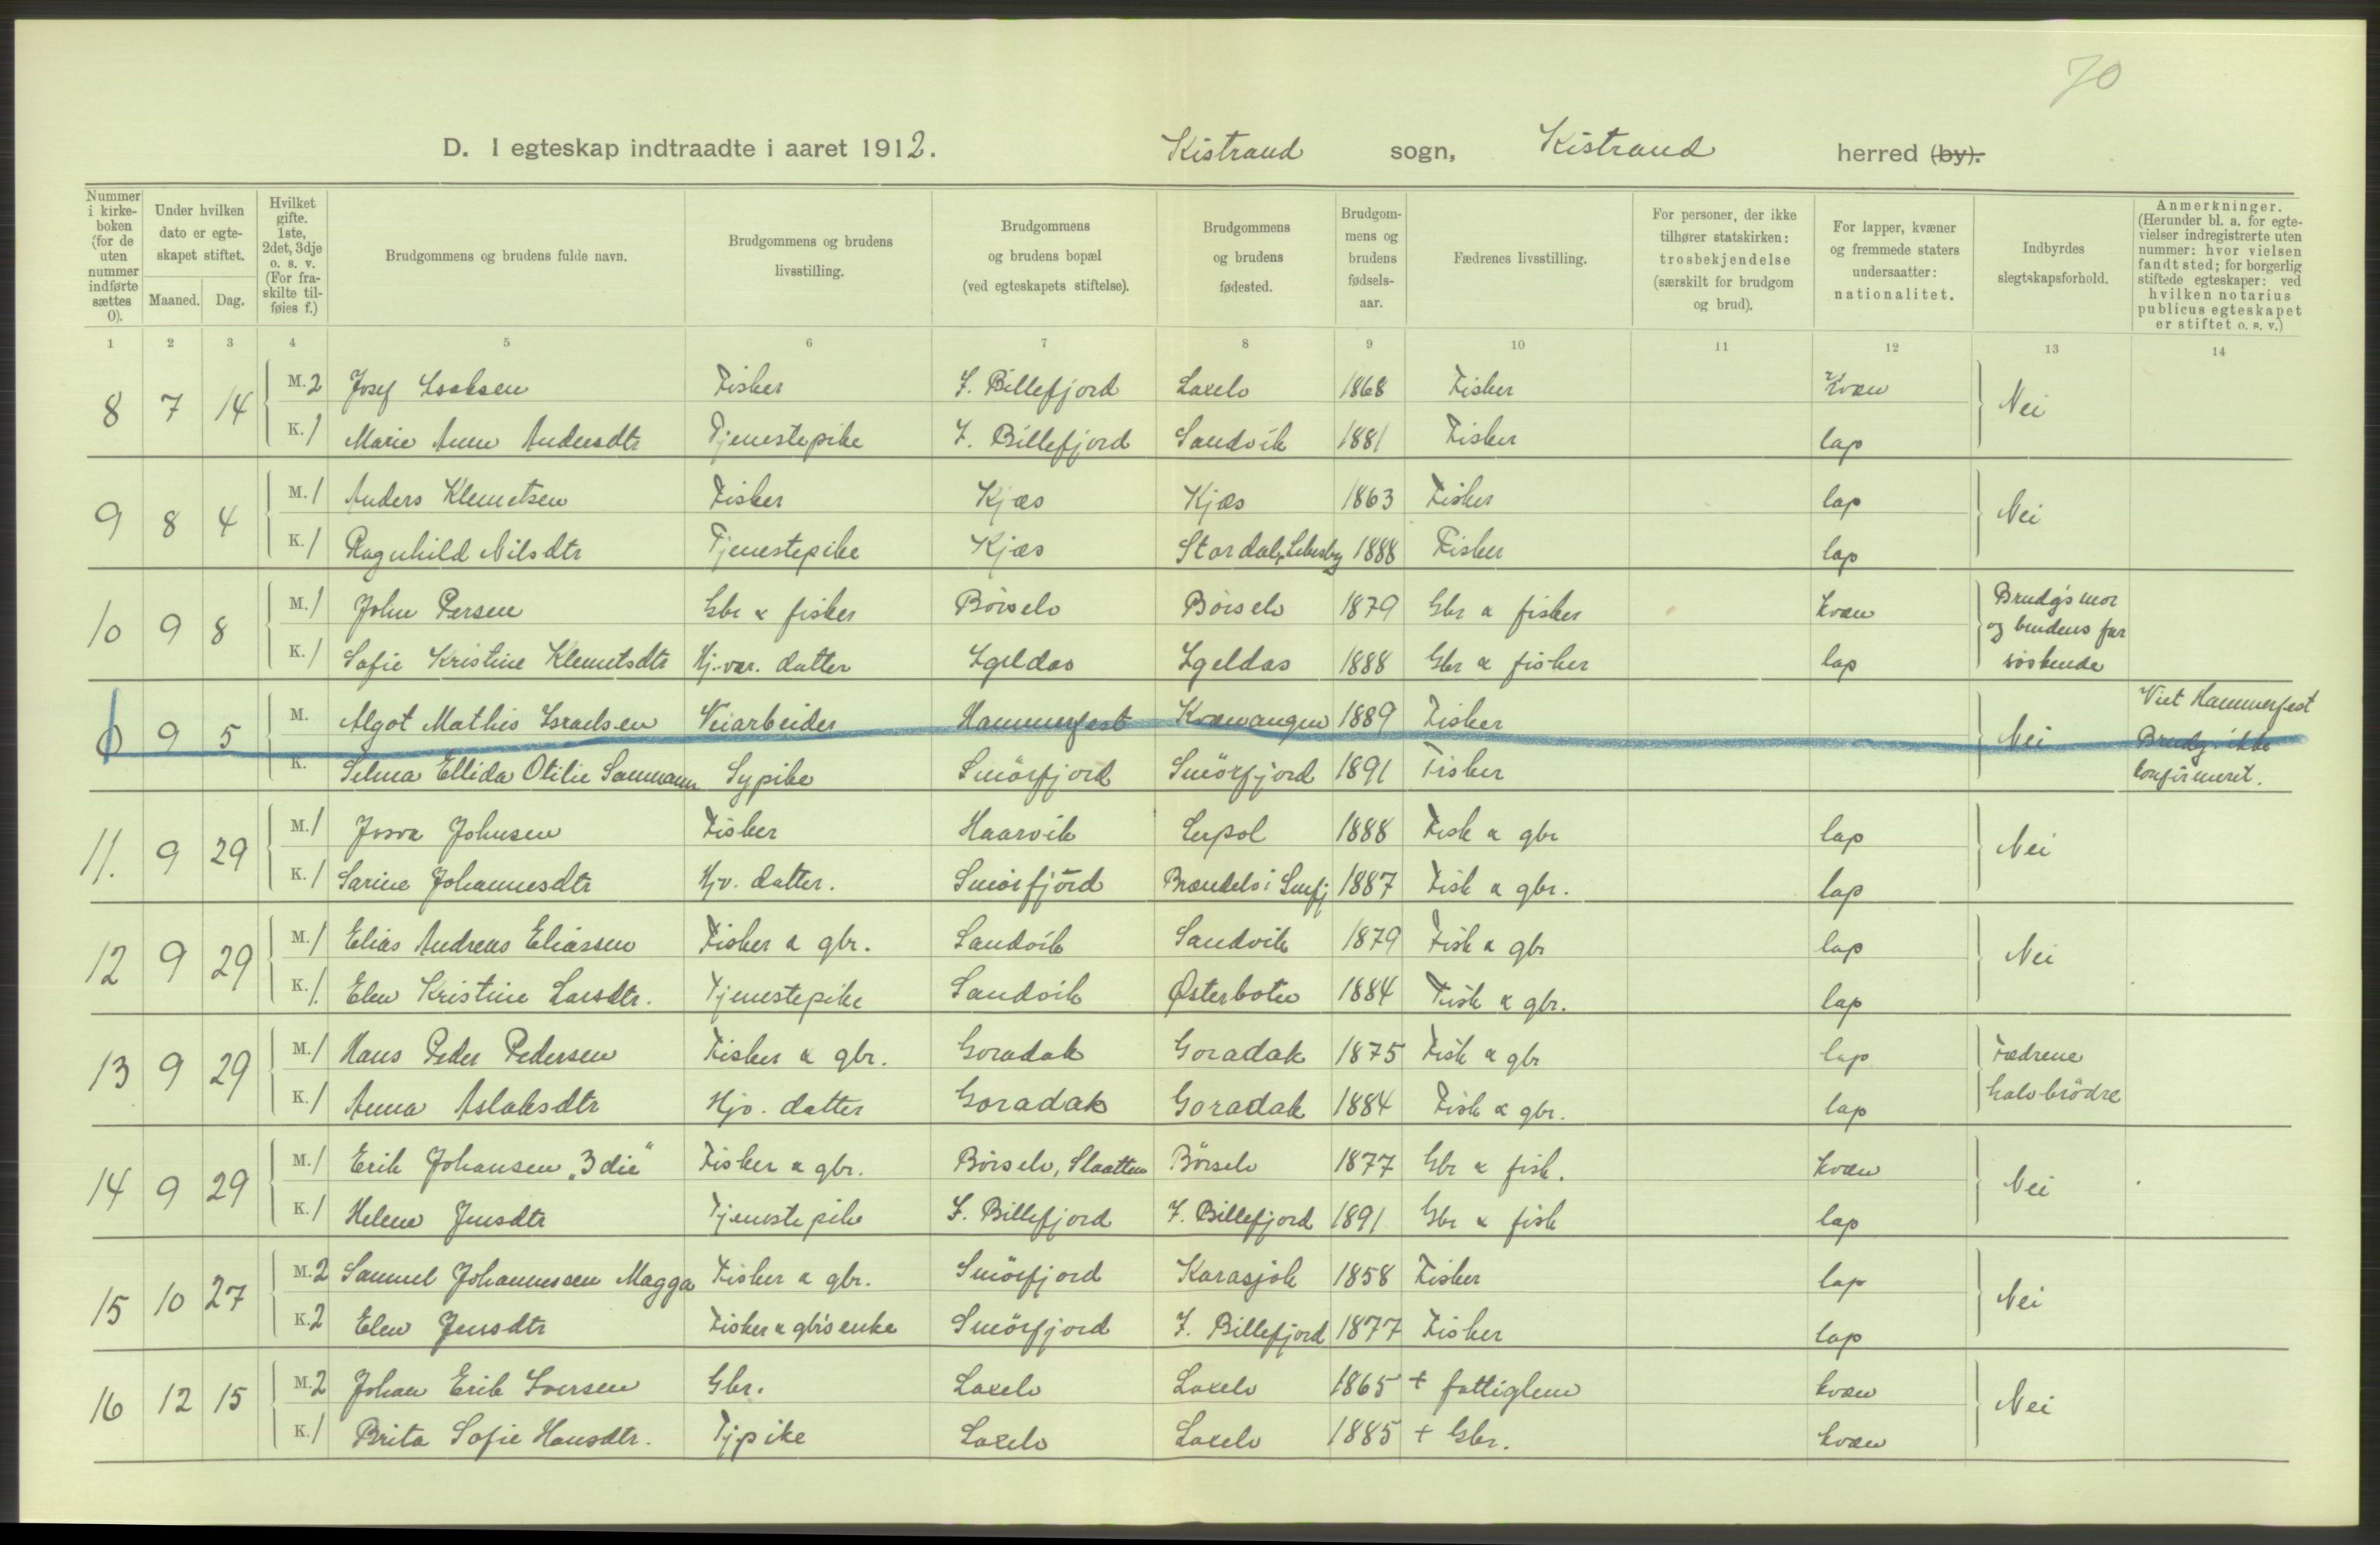 70
D. I egteskap indtraadte i aaret 1912. Kistrand sogn, Kistrand herred (by).
Nummer i kirkeboken (for de uten nummer indførte sættes 0). Under hvilken dato er egteskapet stiftet. Maaned. Dag. Hvilket gifte. 1ste, 2det, 3dje o. s. v. (For fraskilte tilføies f.) Brudgommens og brudens fulde navn. Brudgommens og brudens livsstilling. Brudgommens og brudens bopæl (ved egteskapets stiftelse). Brudgommens og brudens fødested. Brudgommens og brudens fødselsaar. Fædrenes livsstilling. For personer, der ikke tilhører statskirken: trosbekjendelse (særskilt for brudgom og brud). For lapper, kvæner og fremmede staters undersaatter: nationalitet. Indbyrdes slegtskapsforhold. Anmerkninger. (Herunder bl. a. for egtevielser indregistrerte uten nummer: hvor vielsen fandt sted; for borgerlig stiftede egteskaper: ved hvilken notarius publicus egteskapet er stiftet o. s. v.)
1 2 3 4 5 6 7 8 9 10 11 12 13 14
8 7 14 M. 2 Josef Isaksen Fisker I. Billefjord Laxelv 1868 Fisker Kvæn Nei
K. 1 Marie Anne Andersdtr Tjenestepike I. Billefjord Sandvik 1881 Fisker lap
9 8 4 M. 1 Anders Klemetsen Fisker Kjæs Kjæs 1863 Fisker lap Nei
K. 1 Ragnhild Nilsdtr Tjenestepike Kjæs Stordal, Lebesby 1888 Fisker lap
10 9 8 M. 1 John Persen Gbr & fisker Börselv Börselv 1879 Gbr & fisker kvæn Brudg's mor og brudens far söskende
K. 1 Sofie Kristine Klemetsdtr Hj.-vær. datter Igeldas Igeldas 1888 Gbr & fisker lap
0 9 5 M. Algot Mathis Israelsen Veiarbeider Hammerfest Kvænangen 1889 Fisker Nei Viet Hammerfest Brudg. ikke konfirmeret.
K. Selma Ellida Otilie Sammann Sypike Smörfjord Smörfjord 1891 Fisker
11. 9 29 M. 1 Josva Johnsen Fisker Haarvik Lerpol 1888 Fisk & gbr lap Nei
K. 1 Sarine Johannesdtr Hjv. datter. Smörfjord Brændelv i Smfj 1887 Fisk & gbr. lap
12 9 29 M. 1 Elias Andreas Eliassen Fisker & gbr. Sandvik Sandvik 1879 Fisk & gbr lap Nei
K. 1. Elen Kristine Larsdtr. Tjenestepike Sandvik Østerboten 1884 Fisk & gbr. lap
13 9 29 M. 1 Hans Peder Pedersen Fisker & gbr. Goradak Goradak 1875 Fisk & gbr lap Fædrene halvbrödre
K. 1 Anna Aslaksdtr Hjv. datter Goradak Goradak 1884 Fisk & gbr. lap
14 9 29 M. 1 Erik Johansen „3die“ Fisker & gbr. Börselv, Slaatten Börselv 1877 Gbr & fisk. kvæn Nei
K. 1 Helene Jensdtr Tjenestepike I. Billefjord I. Billefjord 1891 Gbr & fisk lap
15 10 27 M. 2 Samuel Johannessen Magga Fisker & gbr. Smörfjord Karasjok 1858 Fisker lap Nei
K. 2 Elen Jensdtr Fisker & gbr's enke Smörfjord I. Billefjord 1877 Fisker lap
16 12 15 M. 2 Johan Erik Iversen Gbr. Laxelv Laxelv 1865 + fattiglem kvæn Nei
K. 1 Brita Sofie Hansdtr. Tjpike Laxelv Laxelv 1885 + Gbr. kvæn